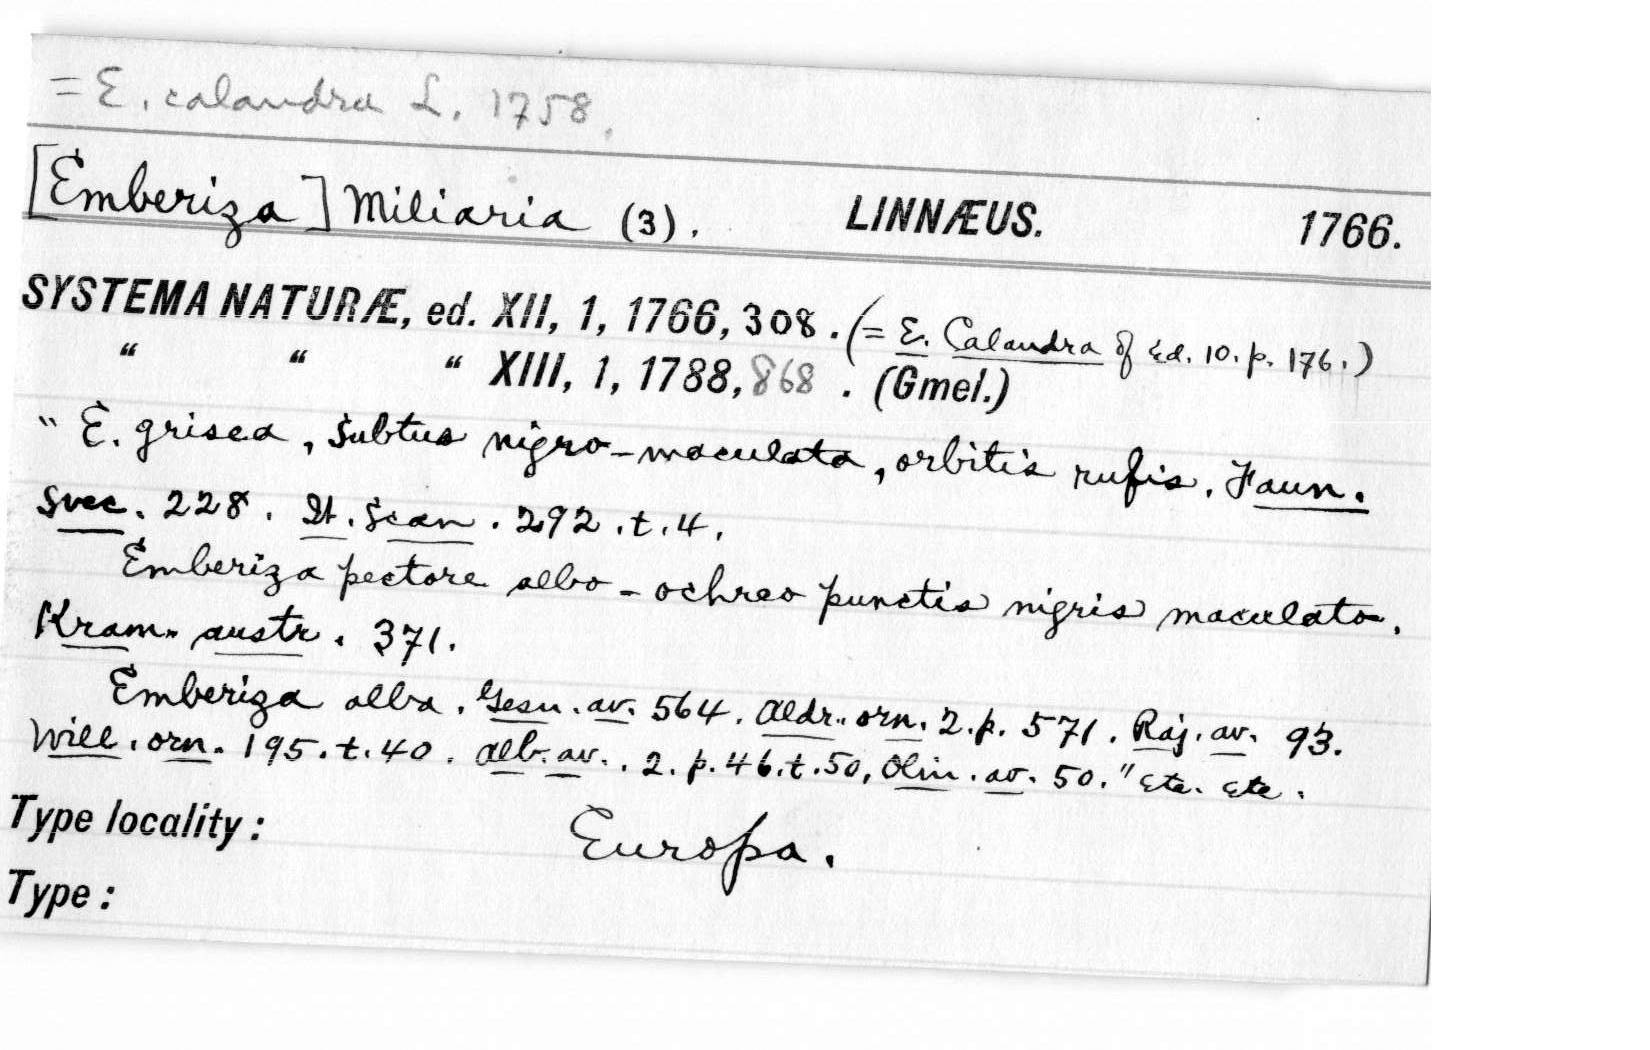 = E. calandra L. 1758.
[Emberiza] Miliaria (3). LINNÆUS. 1766.
SYSTEMA NATURÆ, ed. XII, 1, 1766, 308. (= E. Calandra of Ed. 10. p. 176.)
" " " XIII, 1, 1788, 868. (Gmel.)
"E. grisea, subtus nigro-maculata, orbitis rufis. Faun.
Svec. 228. It. Scan. 292. t. 4.
Emberiza pectore albo-ochreo punctis nigris maculato.
Kram. austr. 371.
Emberiza alba. Gesn. av. 564. Aldr. orn. 2. p. 571. Raj. av. 93.
Will. orn. 195. t. 40. Alb. av. 2. p. 46. t. 50, Olin. av. 50." Etc. Etc.
Type locality: Europa.
Type: